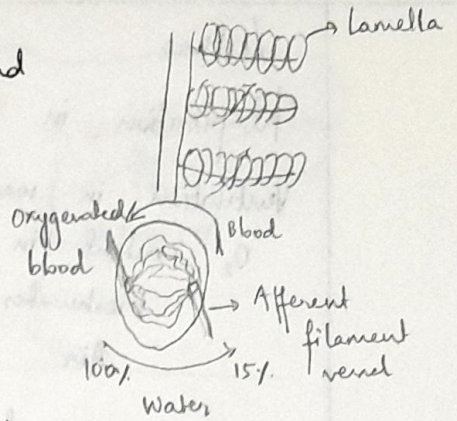 nd
Lamella
Oxygenated
blood
Blood
Afferent
filament
vessel
100%
15%
Water